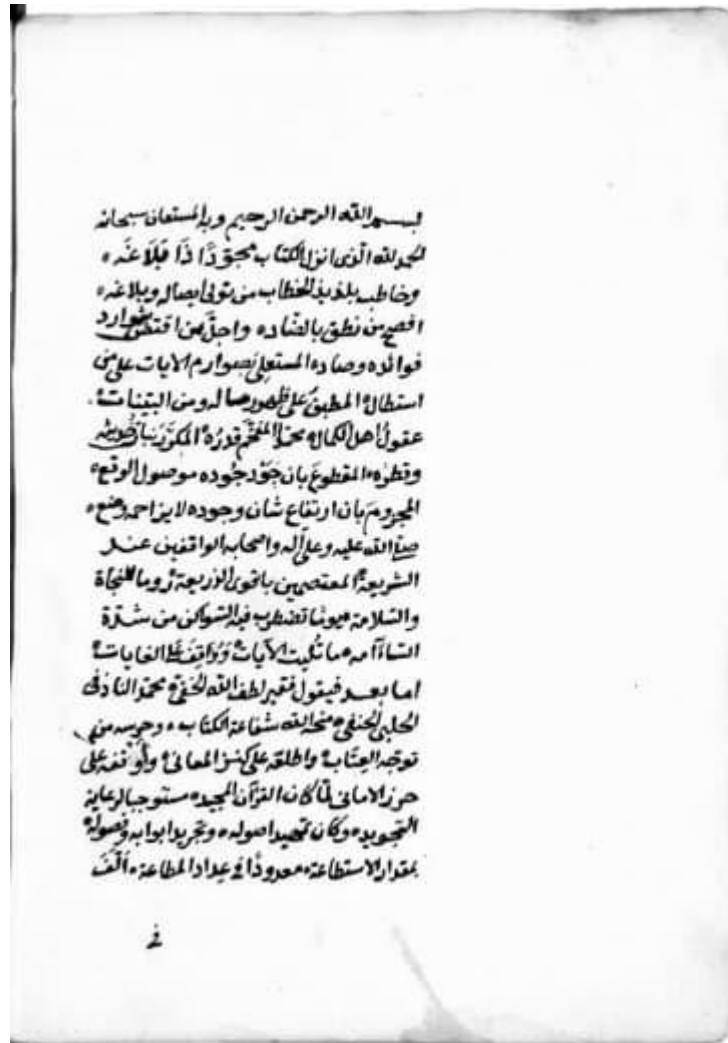 بسم الله الرحمن الرحيم وبه المستعان سبحانه
الحمد لله الذي انزل الكتاب مجوّدًا ذا بلاغه
وخاطب بلذيذ الخطاب من تولى ايصاله وبلاغه
افصح من نطق بالضاد واجلّ من اقتنص شوارد
فوائده وصاد المستعلي بصوارم الايات على من
استطال المطبق على ظهور ومن البينات
عقول اهل الكمال محمد المفخّم قدره المكرّر
وقطره المقطوع بان جَوْد جُوده موصول الوقع
المجزوم بان ارتفاع شان وجوده لا يزاحمه وضع
صلى الله عليه وعلى آله واصحابه الواقفين عند
الشريعة المعتصمين باقوى الذريعة روما للنجاة
والسلامة يوما تضطرب فيه السواكن من شدّة
ما تُليت الآيات ووُقِفَ على الغايات
اما بعد فيقول فقير لطف الله الخفي محمد التادفي
الحلبي الحنفي منحه الله شفاعة الكتاب وحرسه من
توجّه العتاب واطلعه على كنز المعاني وأوقفه على
حرز الاماني لمّا كان القرآن المجيد مستوجبا لرعاية
التجويد وكان تمهيد اصوله وتجريد ابوابه وفصوله
بمقدار الاستطاعة معدودًا في عداد الطاعة ألّفت
في